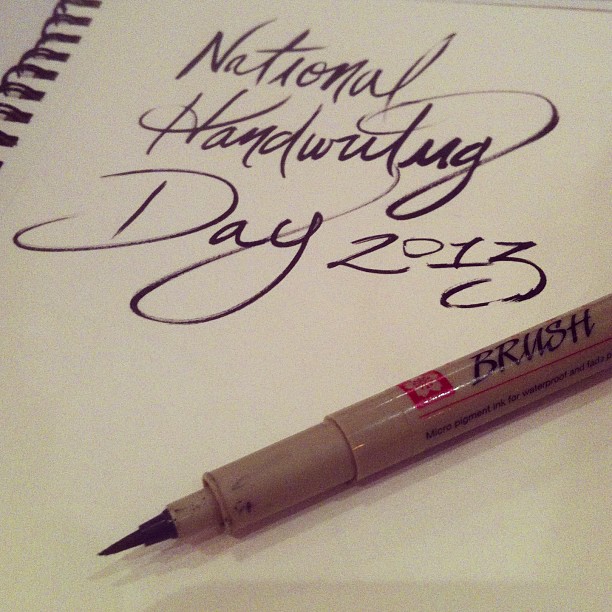 National
Handwriting
Day 2013
BRUSH
Micro pigment ink for waterproof and fade p